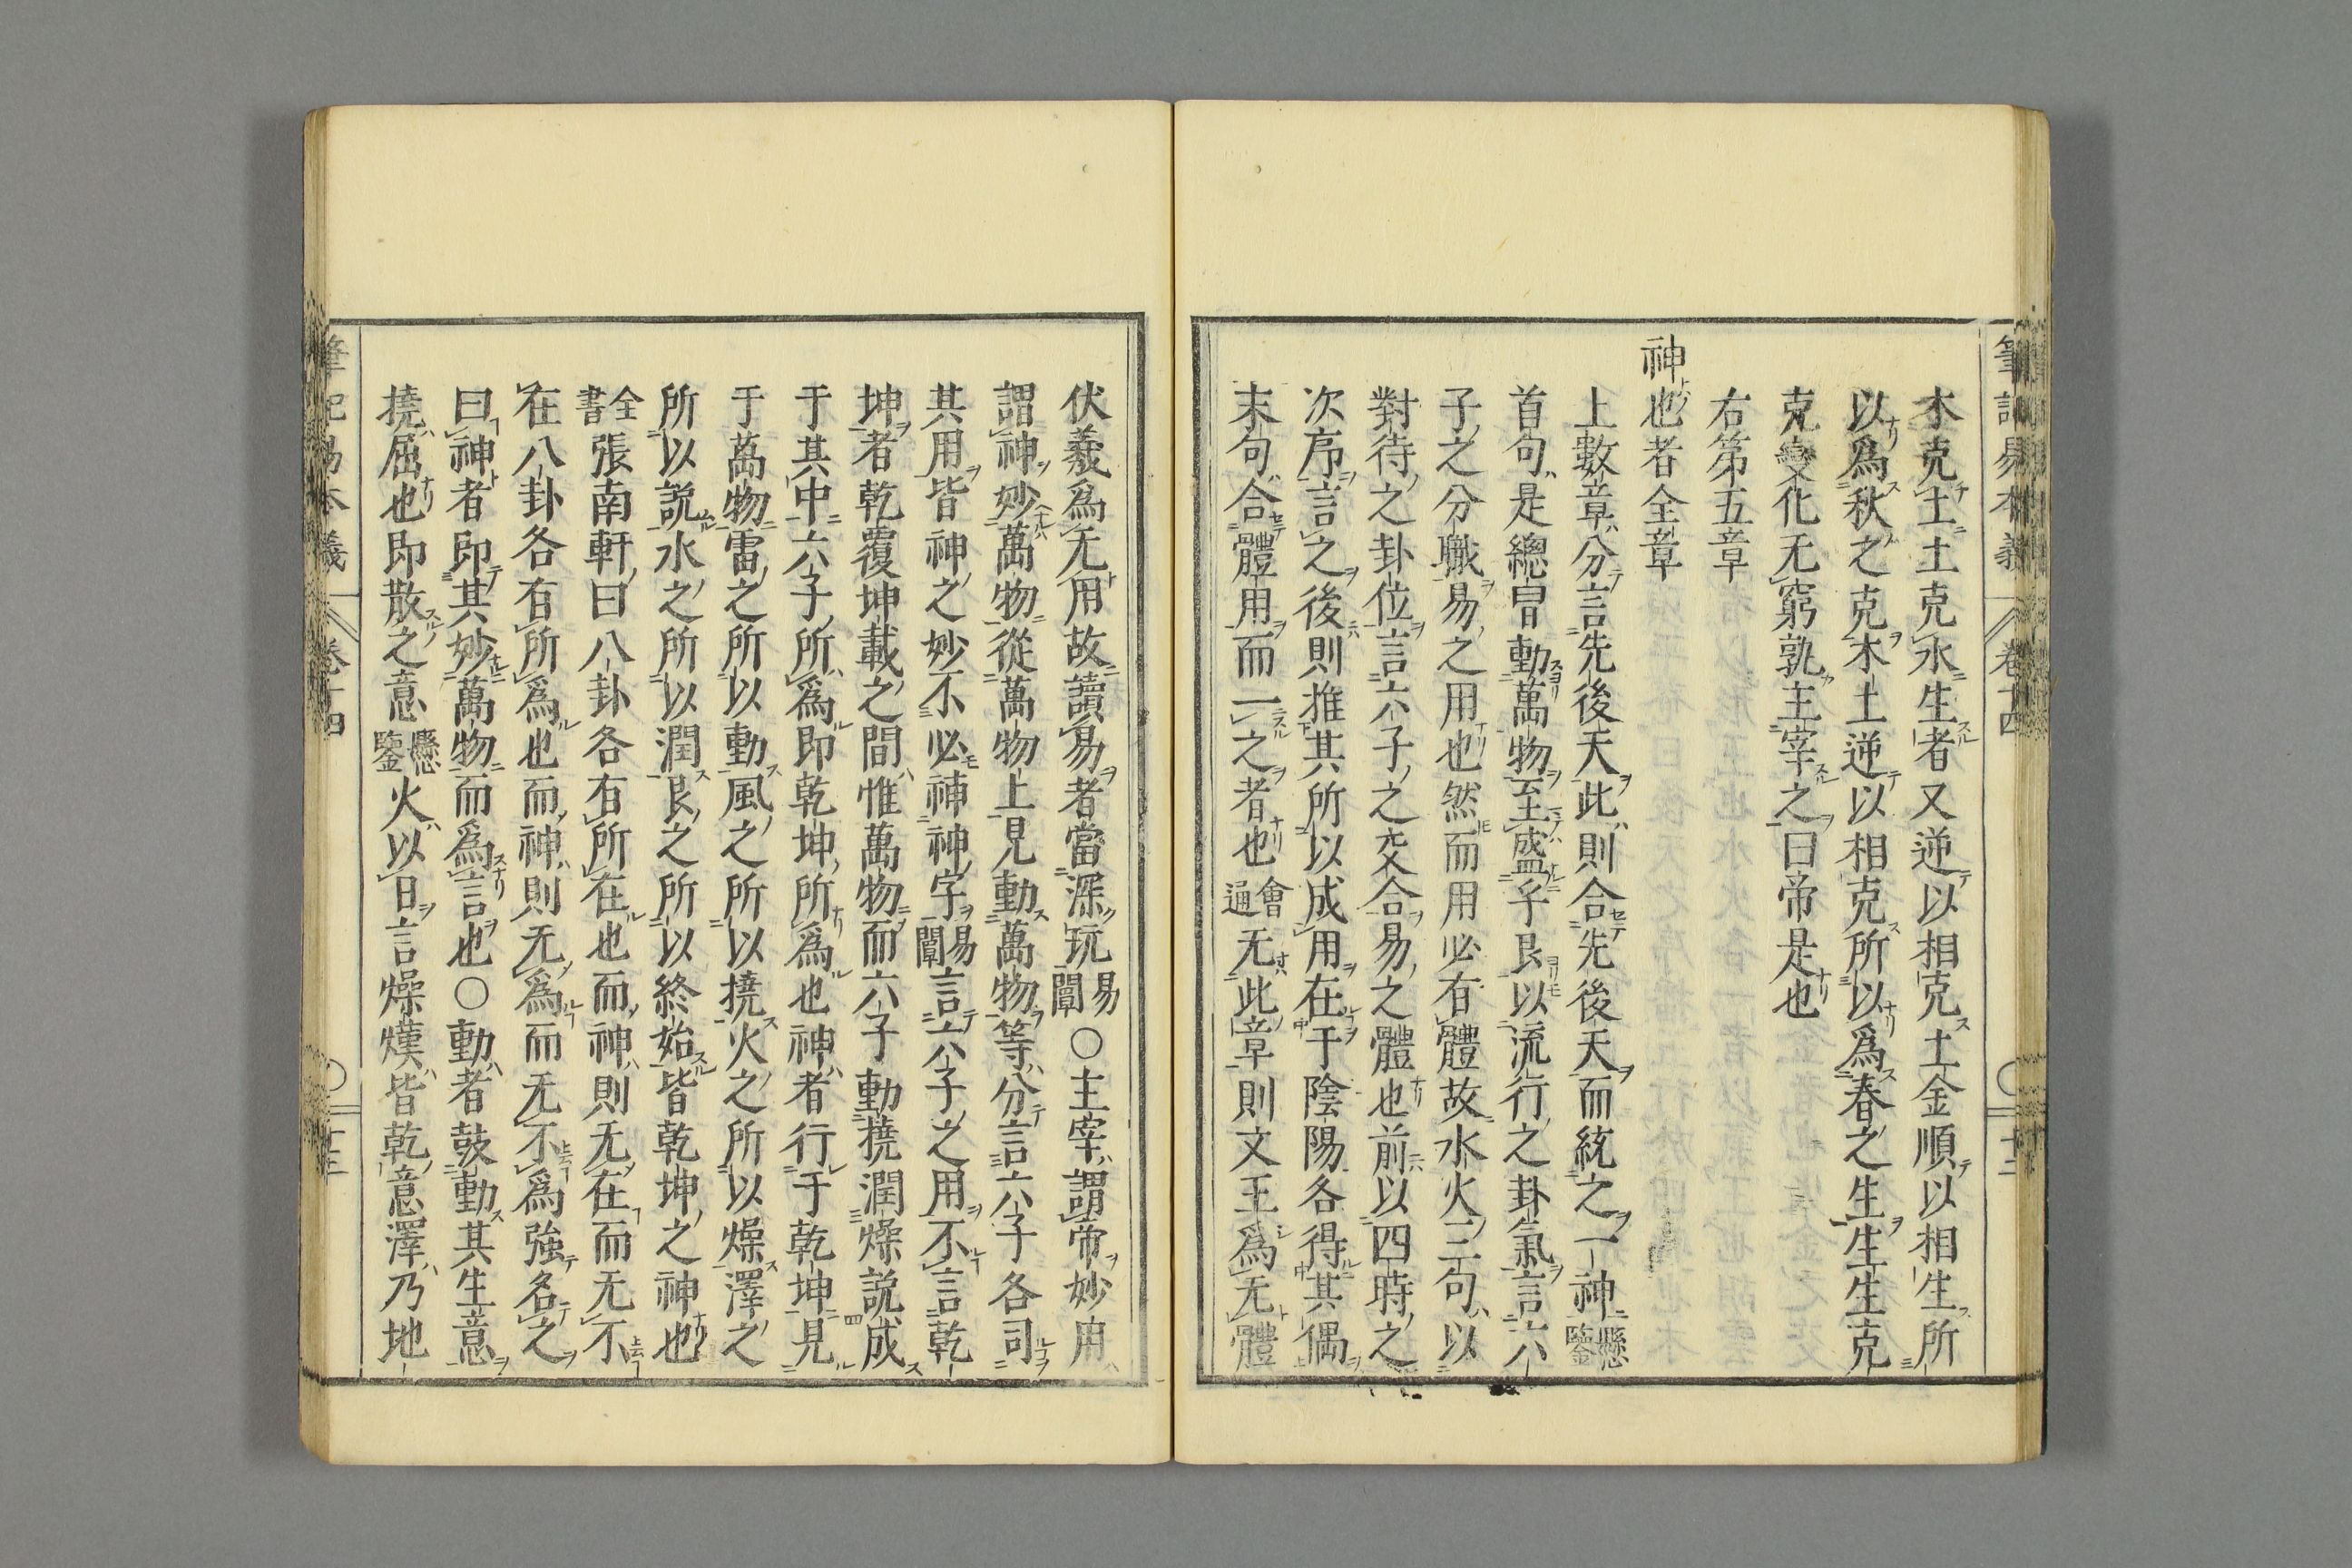 木克土土克水生者又逆以相克土金順以相生所
以爲秋之克木土逆以相克所以爲春之生生生克
克變化无窮孰主宰之曰帝是也
右第五章
神也者全章
上數章分言先後天此則合先後天而統之一神懸鑒
首句是總冒動萬物至盛乎艮以流行之卦氣言六
子之分職易之用也然而用必有體故水火三句以
對待之卦位言六子之交合易之體也前以四時之
次序言之後則推其所以成用在于陰陽各得其偶
末句合體用而一之者也會通无此章則文王爲无體
伏羲爲无用故讀易者當深玩易闡○主宰謂帝妙用
謂神妙萬物從萬物上見動萬物等分言六子各司
其用皆神之妙不必補神字易闡言六子之用不言乾
坤者乾覆坤載之間惟萬物而六子動撓潤燥説成
于其中六子所爲即乾坤所爲也神者行于乾坤見
于萬物雷之所以動風之所以撓火之所以燥澤之
所以説水之所以潤艮之所以終始皆乾坤之神也
全書張南軒曰八卦各有所在也而神則无在而无不
在八卦各有所爲也而神則无爲而无不爲強名之
曰神者即其妙萬物而爲言也○動者鼓動其生意
撓屈也即散之意懸鑒火以日言燥熯皆乾意澤乃地
筆記易本義 卷十四 十二